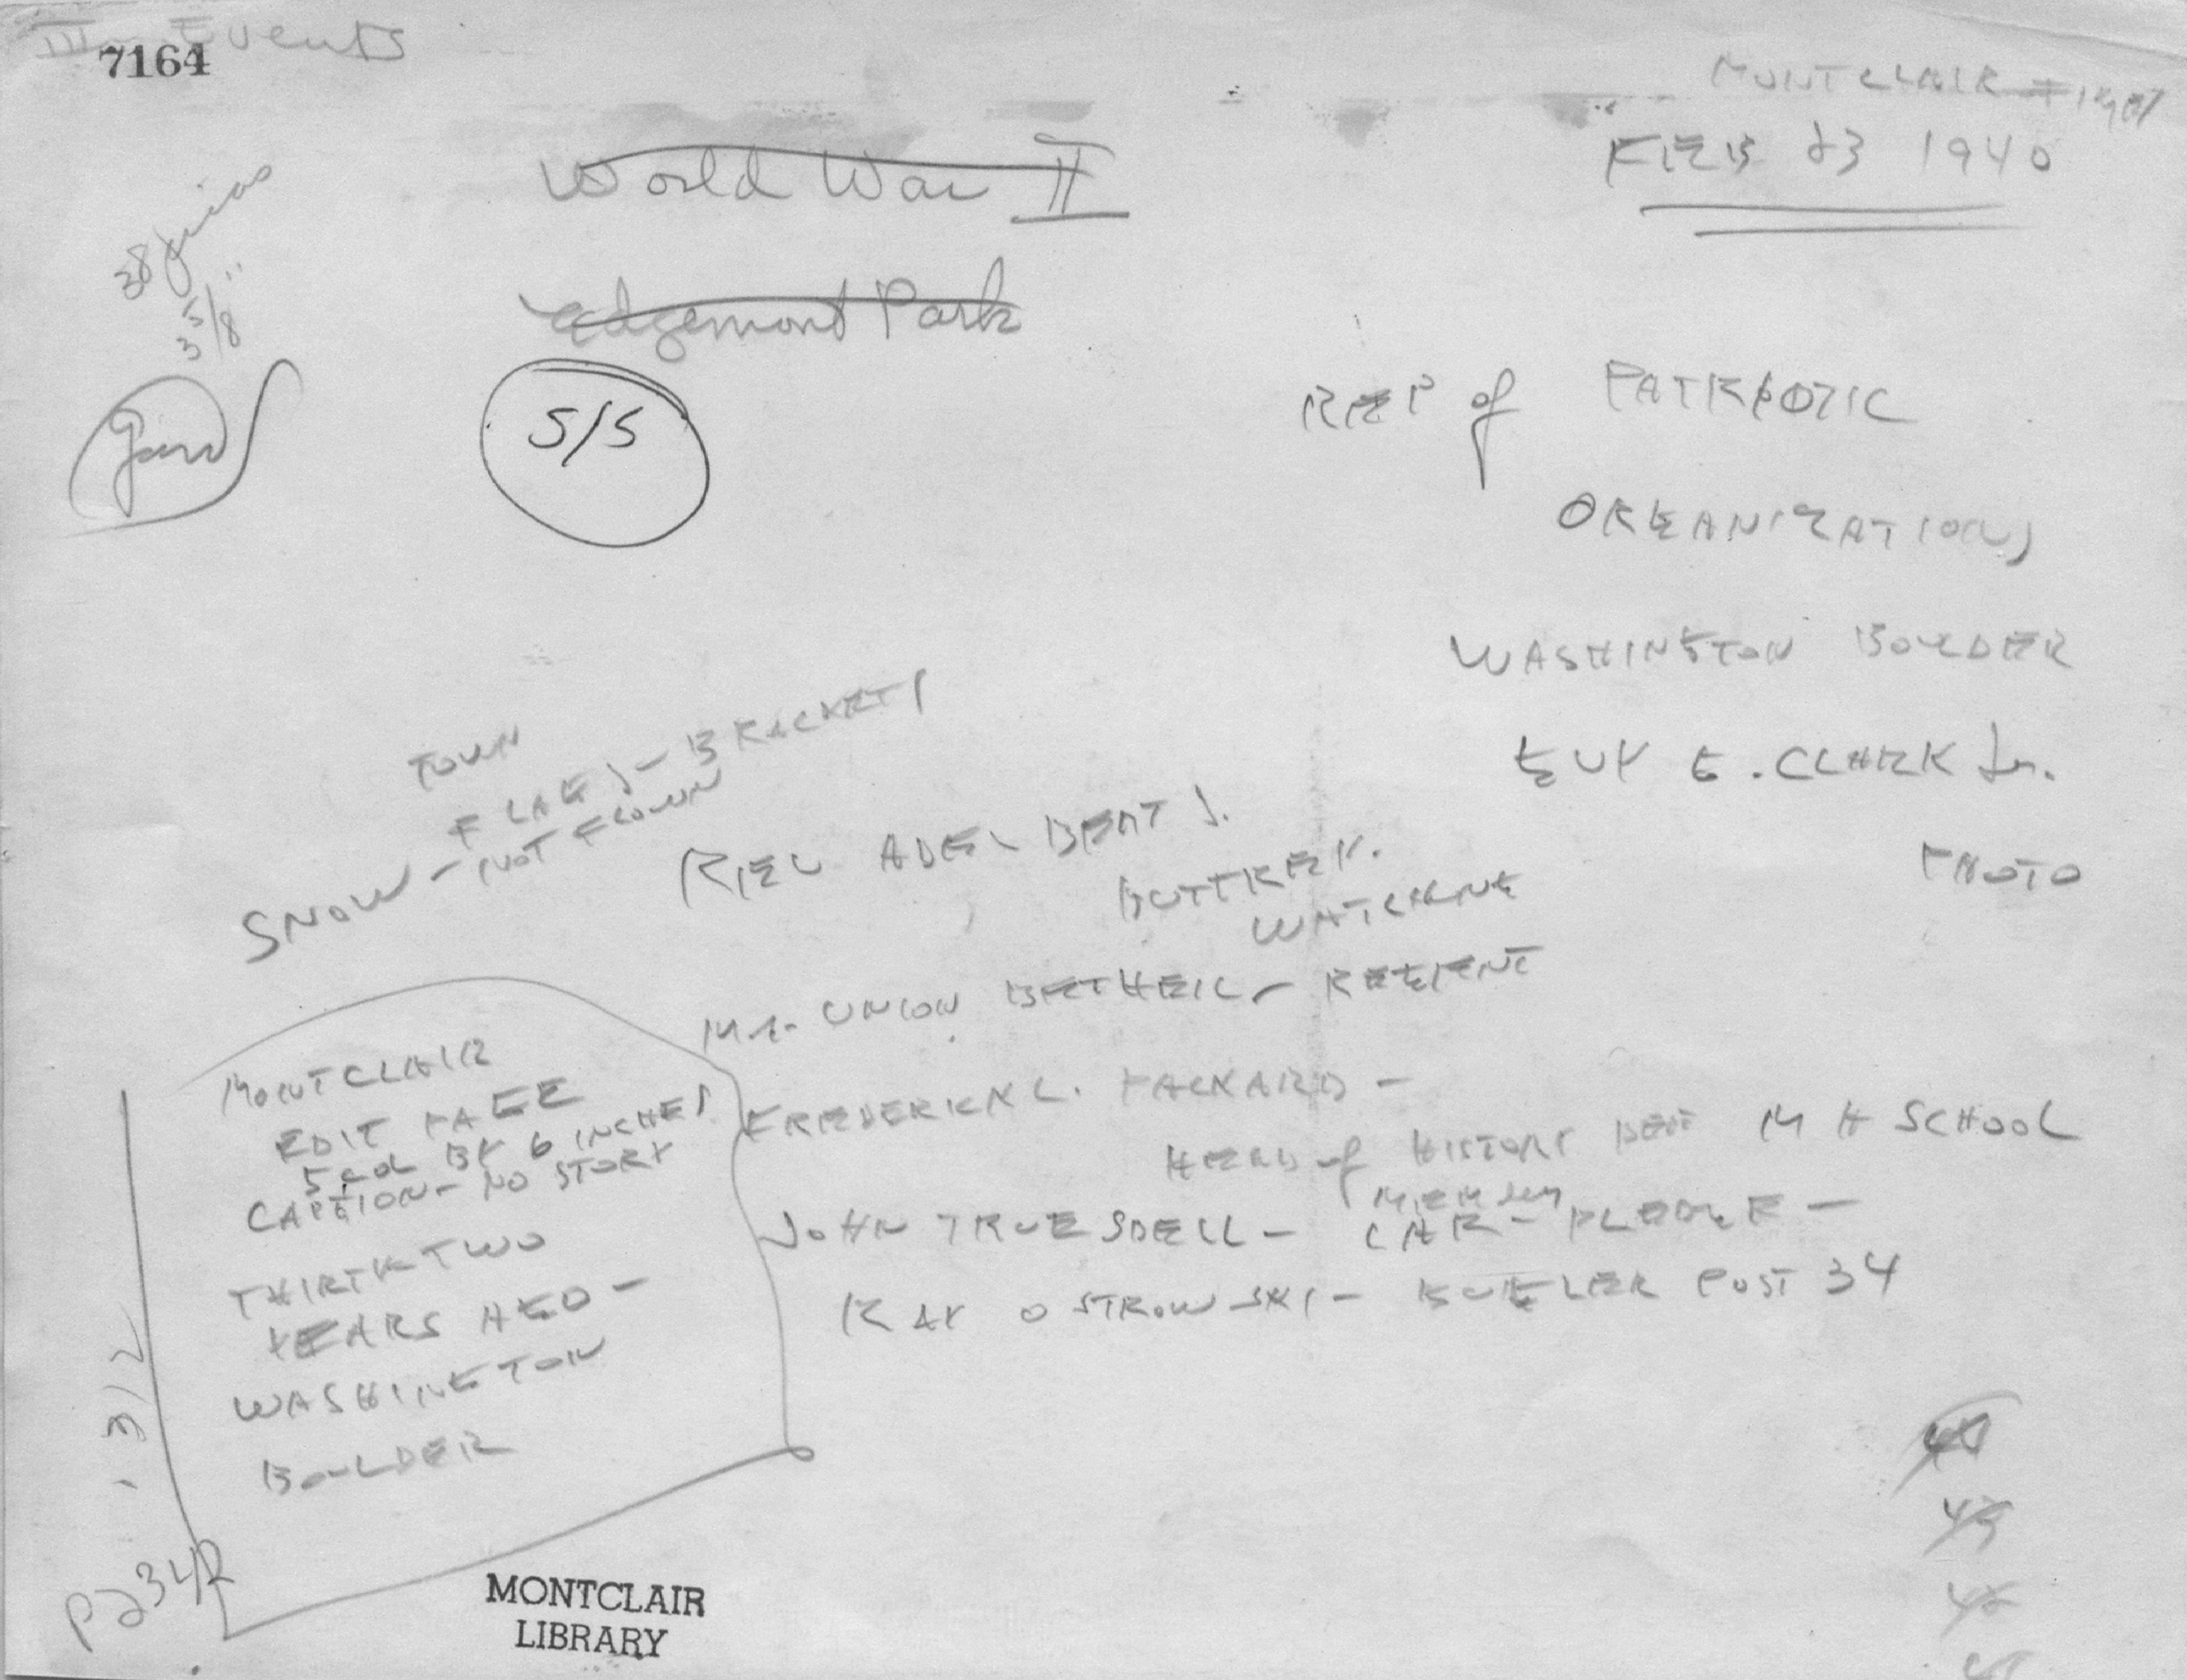 III - Events
7164
MONTCLAIR
FEB 23 1940
World War II
Edgemont Park
3 5/8"
5/5
REP of PATRIOTIC
ORGANIZATIONS
WASHINGTON BOULDER
GUY E. CLARK Jr.
PHOTO
TOWN
FLAGS - BRACKETS
SNOW - NOT FLOWN
REV ADELBERT J.
BUTTREY.
WATCHUNG
Mrs. UNION BETHELL - REGENT
FREDERICK L. PACKARD -
HEAD of HISTORY DEPT M H SCHOOL
MEMBER
JOHN TRUESDELL - CAR - PLEDGE -
RAY OSTROWSKI - GUGLER POST 34
MONTCLAIR
EDIT PAGE
5 COL BY 6 INCHES
CAPTION - NO STORY
THIRTY TWO
YEARS AGO -
WASHINGTON
BOULDER
P234R
43
MONTCLAIR
LIBRARY